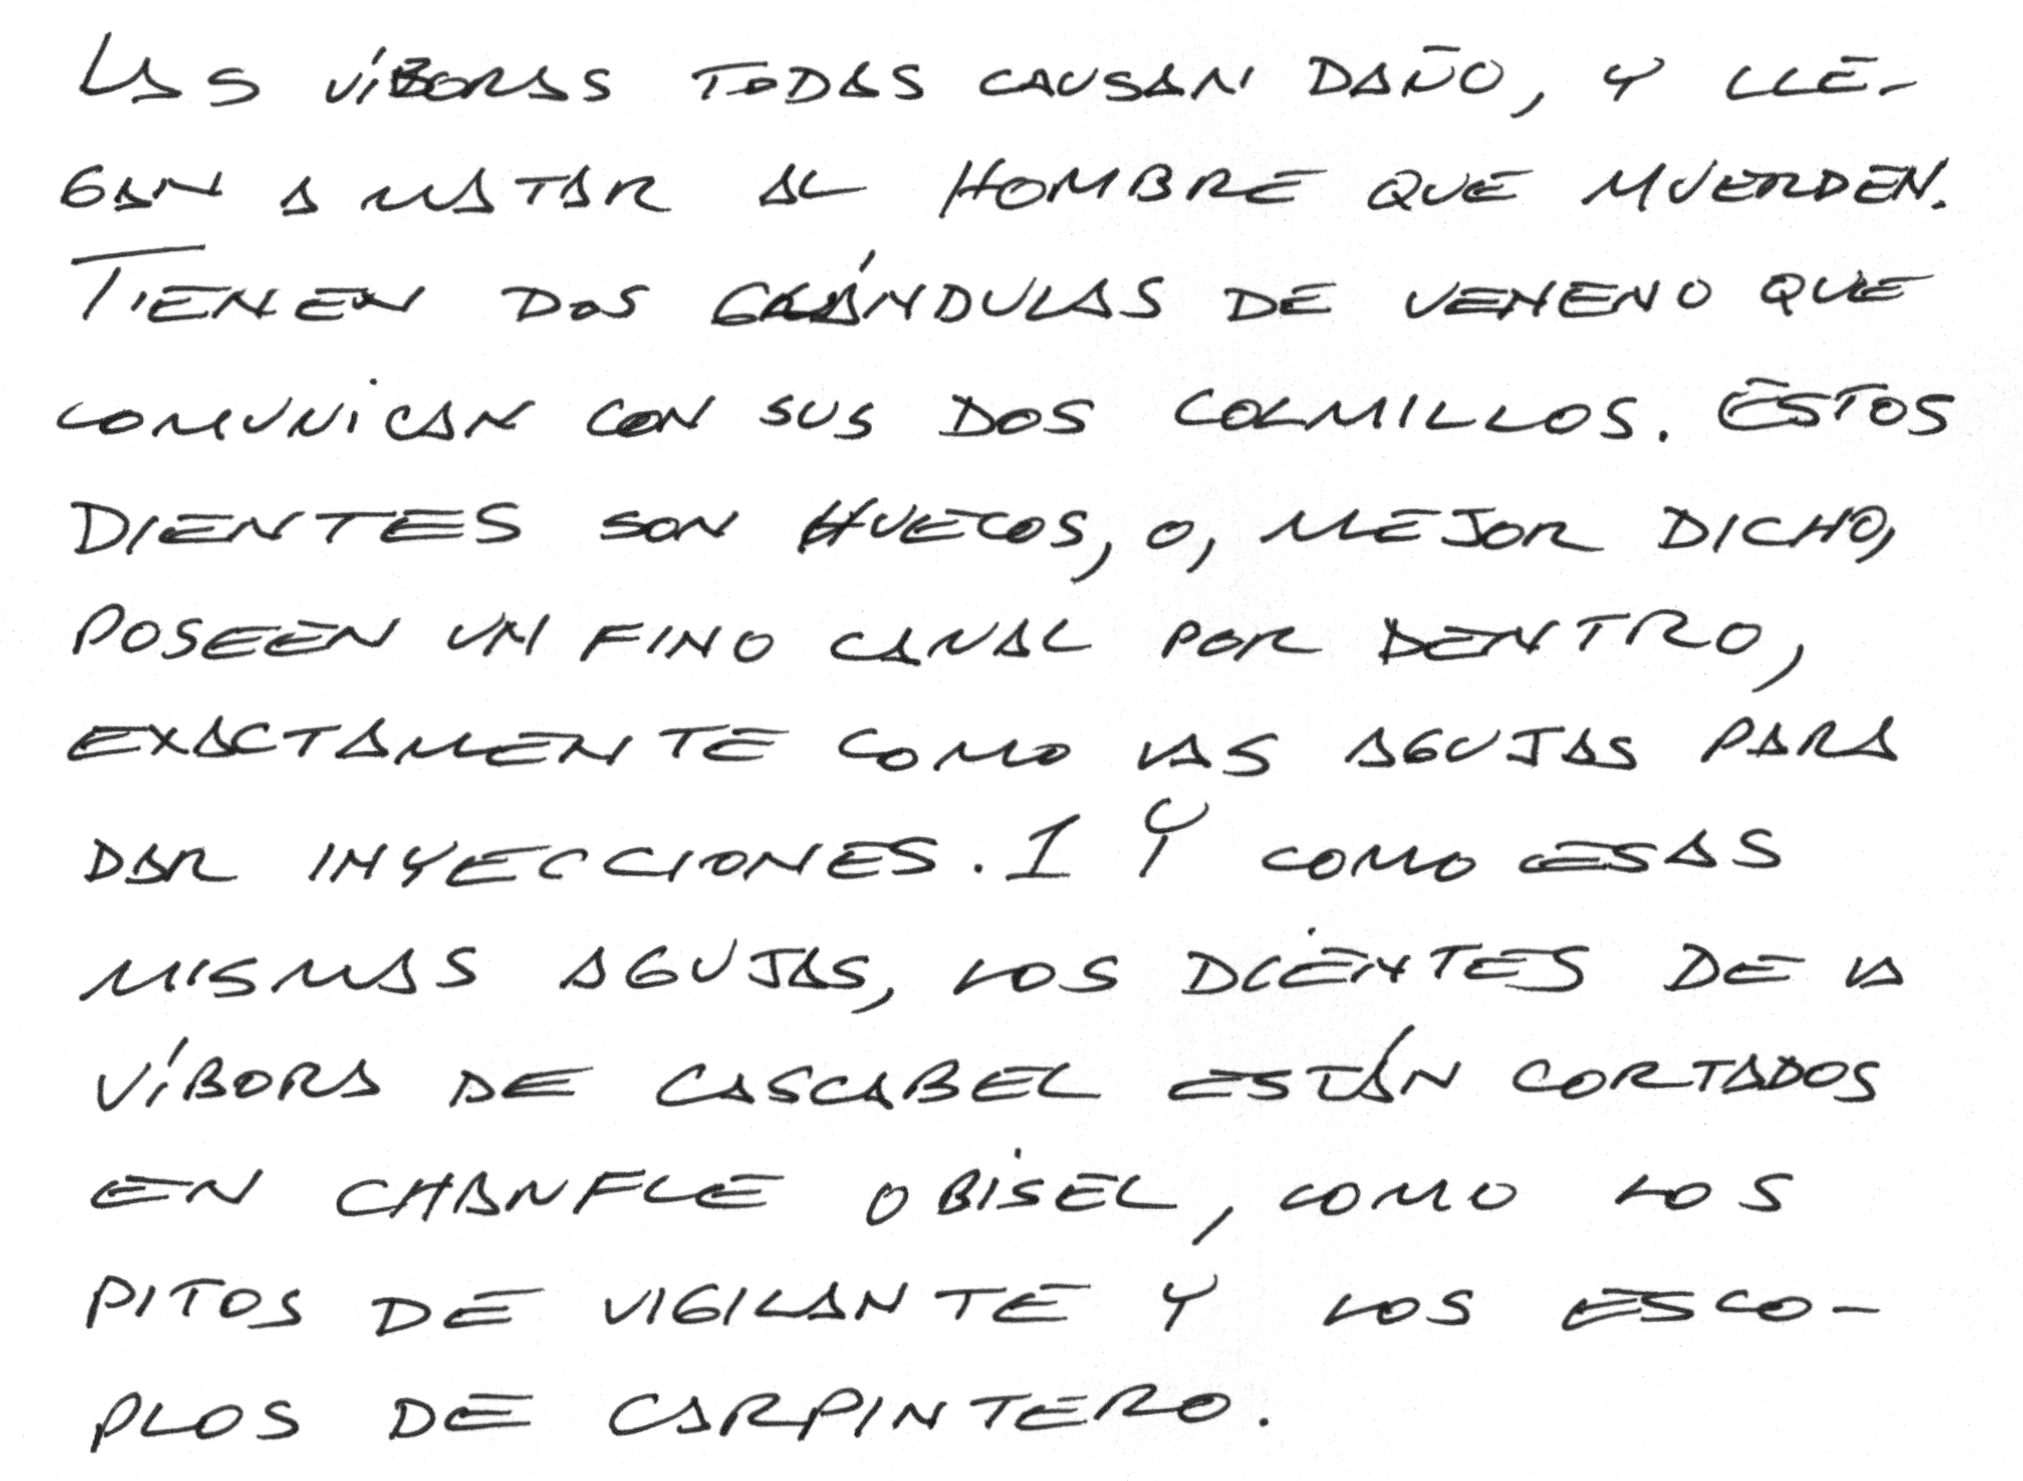 LAS VÍBORAS TODAS CAUSAN DAÑO, Y LLE-
GAN A MATAR AL HOMBRE QUE MUERDEN.
TIENEN DOS GLÁNDULAS DE VENENO QUE
COMUNICAN CON SUS DOS COLMILLOS. ESTOS
DIENTES SON HUECOS, O, MEJOR DICHO,
POSEEN UN FINO CANAL POR DENTRO,
EXACTAMENTE COMO LAS AGUJAS PARA
DAR INYECCIONES. 1 Y COMO ESAS
MISMAS AGUJAS, LOS DIENTES DE LA
VÍBORA DE CASCABEL ESTÁN CORTADOS
EN CHANFLE O BISEL, COMO LOS
PITOS DE VIGILANTE Y LOS ESCO-
PLOS DE CARPINTERO.